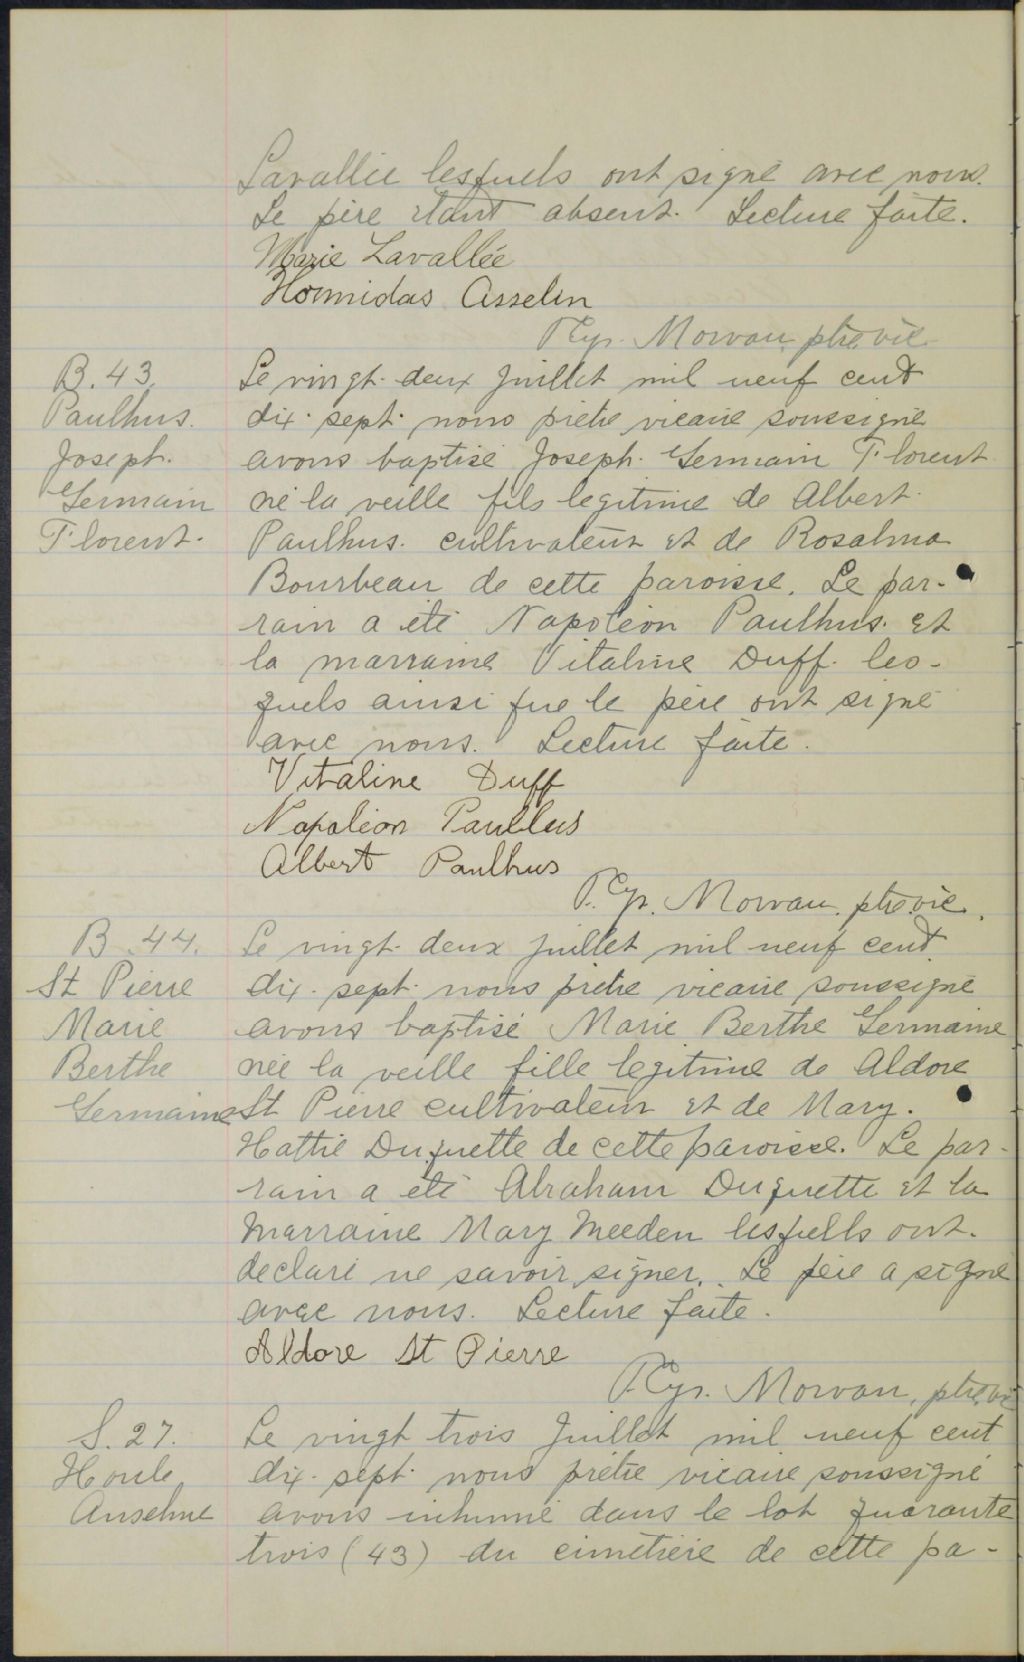 Lavallée lesquels ont signé avec nous.
Le père étant absent. Lecture faite.
Marie Lavallée
Hormidas Asselin
P. Cyp. Morvan, ptre vic.
B. 43.
Paulhus.
Joseph.
Germain
Florent.
Le vingt-deux Juillet mil neuf cent
dix-sept nous prêtre vicaire soussigné
avons baptisé Joseph Germain Florent
né la veille fils legitime de Albert
Paulhus. cultivateur et de Rosalma
Bourbeau de cette paroisse. Le par-
rain a été Napoléon Paulhus. et
la marraine Vitaline Duff. les-
quels ainsi que le père ont signé
avec nous. Lecture faite.
Vitaline Duff
Napoleon Paulhus
Albert Paulhus
P. Cyp. Morvan, ptre vic.
B. 44.
St Pierre
Marie
Berthe
Germaine
Le vingt-deux juillet mil neuf cent
dix-sept nous prêtre vicaire soussigné
avons baptisé Marie Berthe Germaine
née la veille fille legitime de Aldore
St Pierre cultivateur et de Mary.
Hattie Duquette de cette paroisse. Le par-
rain a été Abraham Duquette et la
Marraine Mary Meeden lesquells ont
declaré ne savoir signer. Le père a signé
avec nous. Lecture faite.
Aldore St Pierre
P. Cyp. Morvan, ptre vic
S. 27.
Houle
Anselme
Le vingt trois Juillet mil neuf cent
dix-sept nous prêtre vicaire soussigné
avons inhumé dans le lot quarante
trois (43) du cimetière de cette pa-